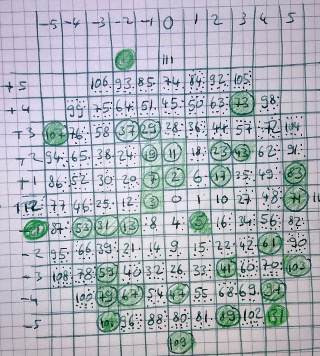 -5 -4 -3 -2 -1 0 1 2 3 4 5
+5 106 93 85 74 84 92 105
+4 99 75 64 51 45 50 63 73 98
+3 107 76 58 37 29 28 36 44 57 72 104
+2 94 65 38 24 19 11 18 23 43 62 91
+1 86 52 30 20 7 2 6 17 35 49 83
77 46 25 12 3 0 1 10 27 48 71
87 53 31 13 8 4 5 16 34 56 82
-2 95 66 39 21 14 9 15 22 42 61 90
-3 108 78 59 40 32 26 33 41 60 70 103
-4 100 79 67 54 47 55 68 69 97
-5 101 96 88 80 81 89 102
109